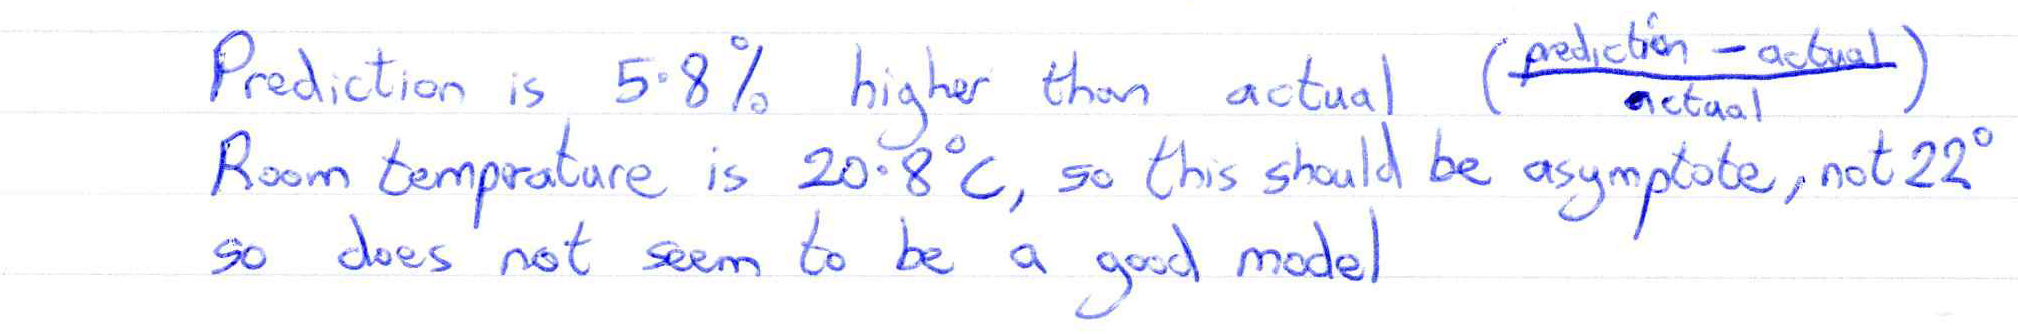 Prediction is 5.8% higher than actual (prediction - actual / actual)
Room temprature is 20.8°C, so this should be asymptote, not 22°
so does not seem to be a good model